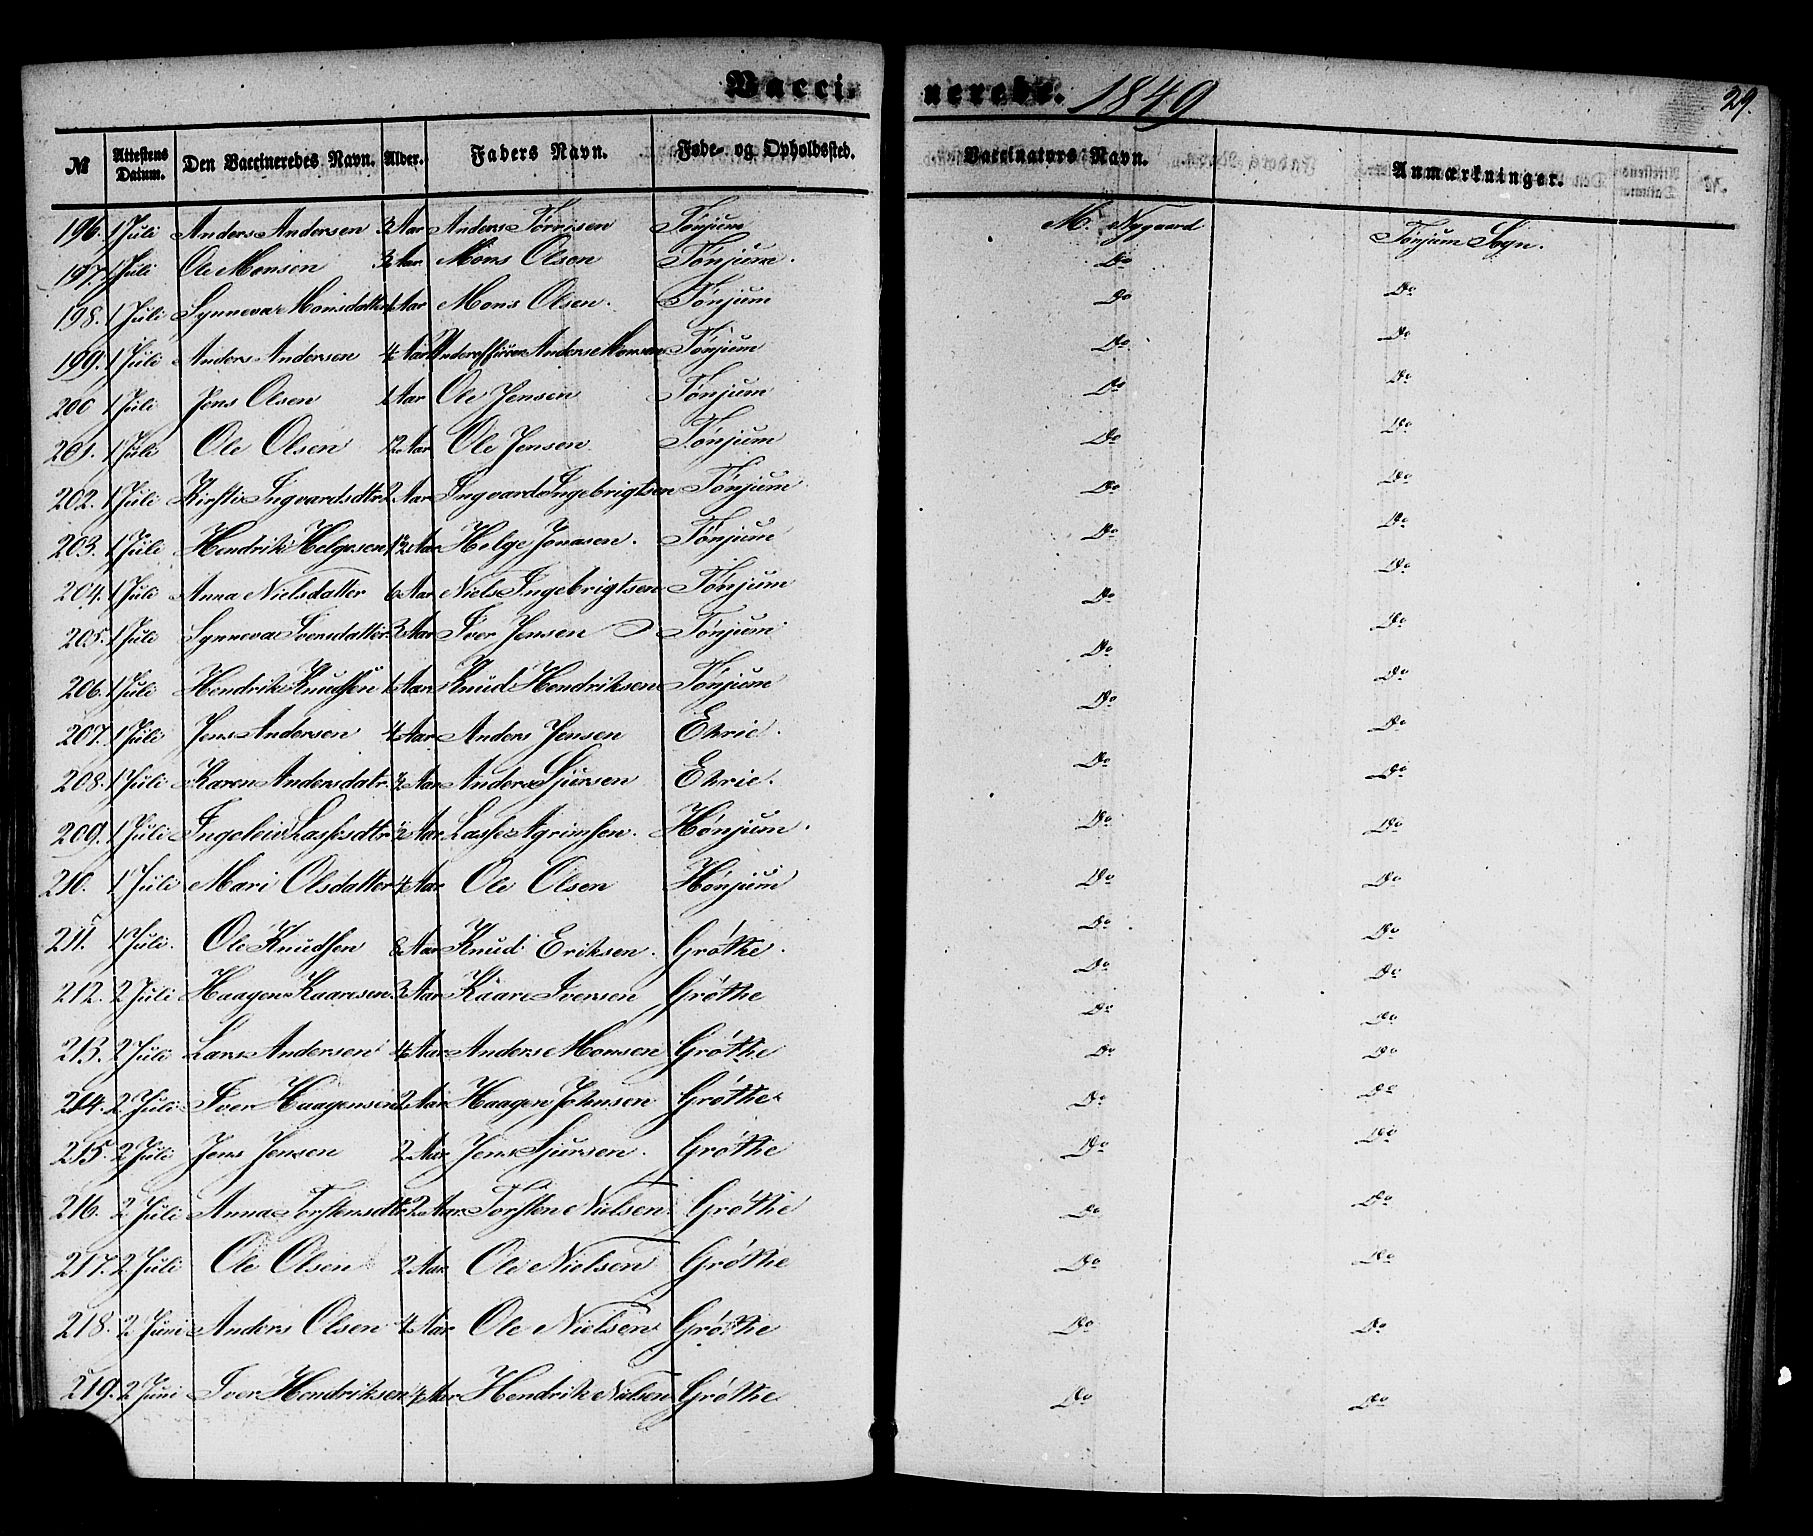 Vaccinerede. 1849
29.
№ Attestens Datum. Den Vaccineredes Navn. Alder. Faders Navn. Føde- og Opholdssted. Vaccinators Navn. Anmærkninger.
196. 1 Juli Anders Andersen 3 Aar Anders Torrisen Tønjum M. Nygaard Tønjum Sogn.
197. 1 Juli Ole Monsen 3 Aar Mons Olsen Tønjum. Do
198. 1 Juli Synneva Monsdatter Aar Mons Olsen. Tønjum Do Do
199. 1 Juli Anders Andersen 4 Aar Anders Monsen Tønjum Do Do
200 1 Juli Jens Olsen 1 Aar Ole Jensen Tønjum Do Do
201. 1 Juli Ole Olsen 12 Aar Ole Jensen Tønjum Do Do
202. 1 Juli Kirsti Ingvardsdtr 2 Aar Ingvard Ingebrigtsen Tønjum Do Do
203. 1 Juli Hendrik Helgesen Aar Helge Jonasen. Tønjum Do Do
204. 1 Juli Anna Nielsdatter 6 Aar Niels Ingebrigtsen Tønjum Do Do
205. 1 Juli Synneva Iversdatter 3 Aar Iver Jensen Tønjum Do Do
206. 1 Juli Hendrik Knudsen 1 Aar Knud Hendriksen Tønjum Do Do
207. 1 Juli Jens Andersen 4 Aar Anders Jensen Ehrie. Do Do
208. 1 Juli Karen Andersdatr ½ Aar Anders Sjursen Ehrie. Do Do
209. 1 Juli Ingeleiv Lassesdtr ½ Aar Lasse Agrimsen. Hønjum. Do Do
210. 1 Juli Mari Olsdatter 4 Aar Ole Olsen Hønjum Do Do
211. 1 Juli. Ole Knudsen 8 Aar Knud Eriksen. Grøthe. Do Do
212. 2 Juli Haagen Kaaresen 3 Aar Kaare Iversen Grøthe Do Do
213. 2 Juli Lars Andersen 4 Aar Anders Monsen Grøthe Do Do
214. 2 Juli Iver Haagensen 2 Aar Haagen Johnsen Grøthe Do Do
215. 2 Juli Jens Jensen 2 Aar Jens Sjursen. Grøthe Do Do
216. 2 Juli Anna Torstensdtr 2 Aar Torsten Nielsen Grøthe Do Do
217. 2 Juli Ole Olsen 2 Aar Ole Nielsen Grøthe Do Do
218. 2 Juni Anders Olsen 4 Aar Ole Nielsen Grøthe Do Do
219. 2 Juni Iver Hendriksen 4 Aar Hendrik Nielsen Grøthe Do Do